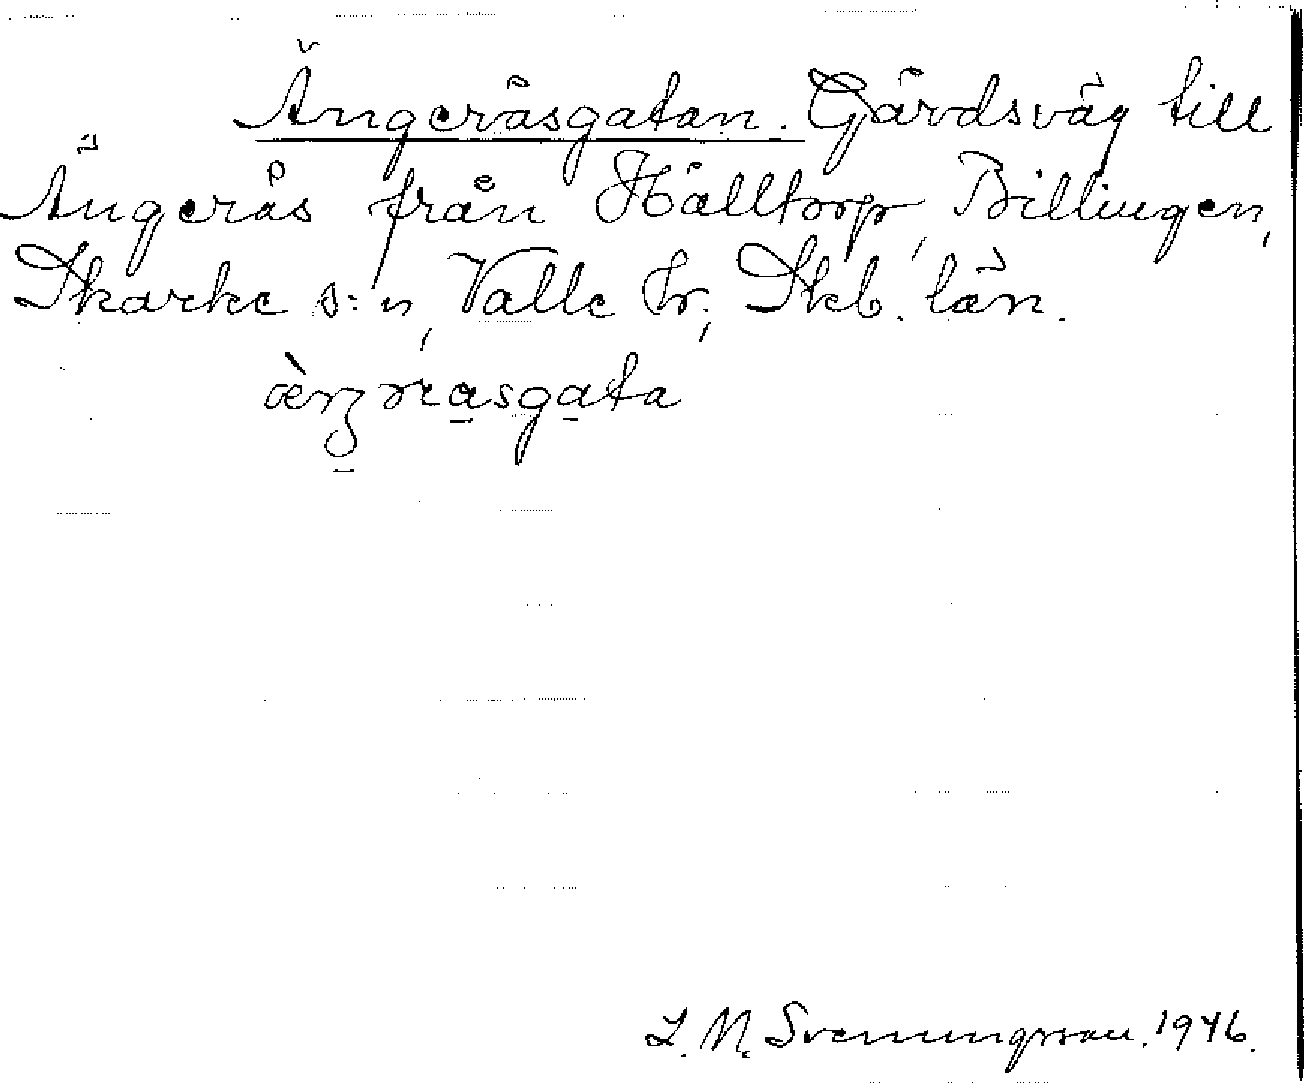 Ängeråsgatan. Gårdsväg till
Ängerås från Hålltorp, Billingen,
Skarke s:n, Valle hr, Skb. län.
L. M. Svenungsson. 1946.